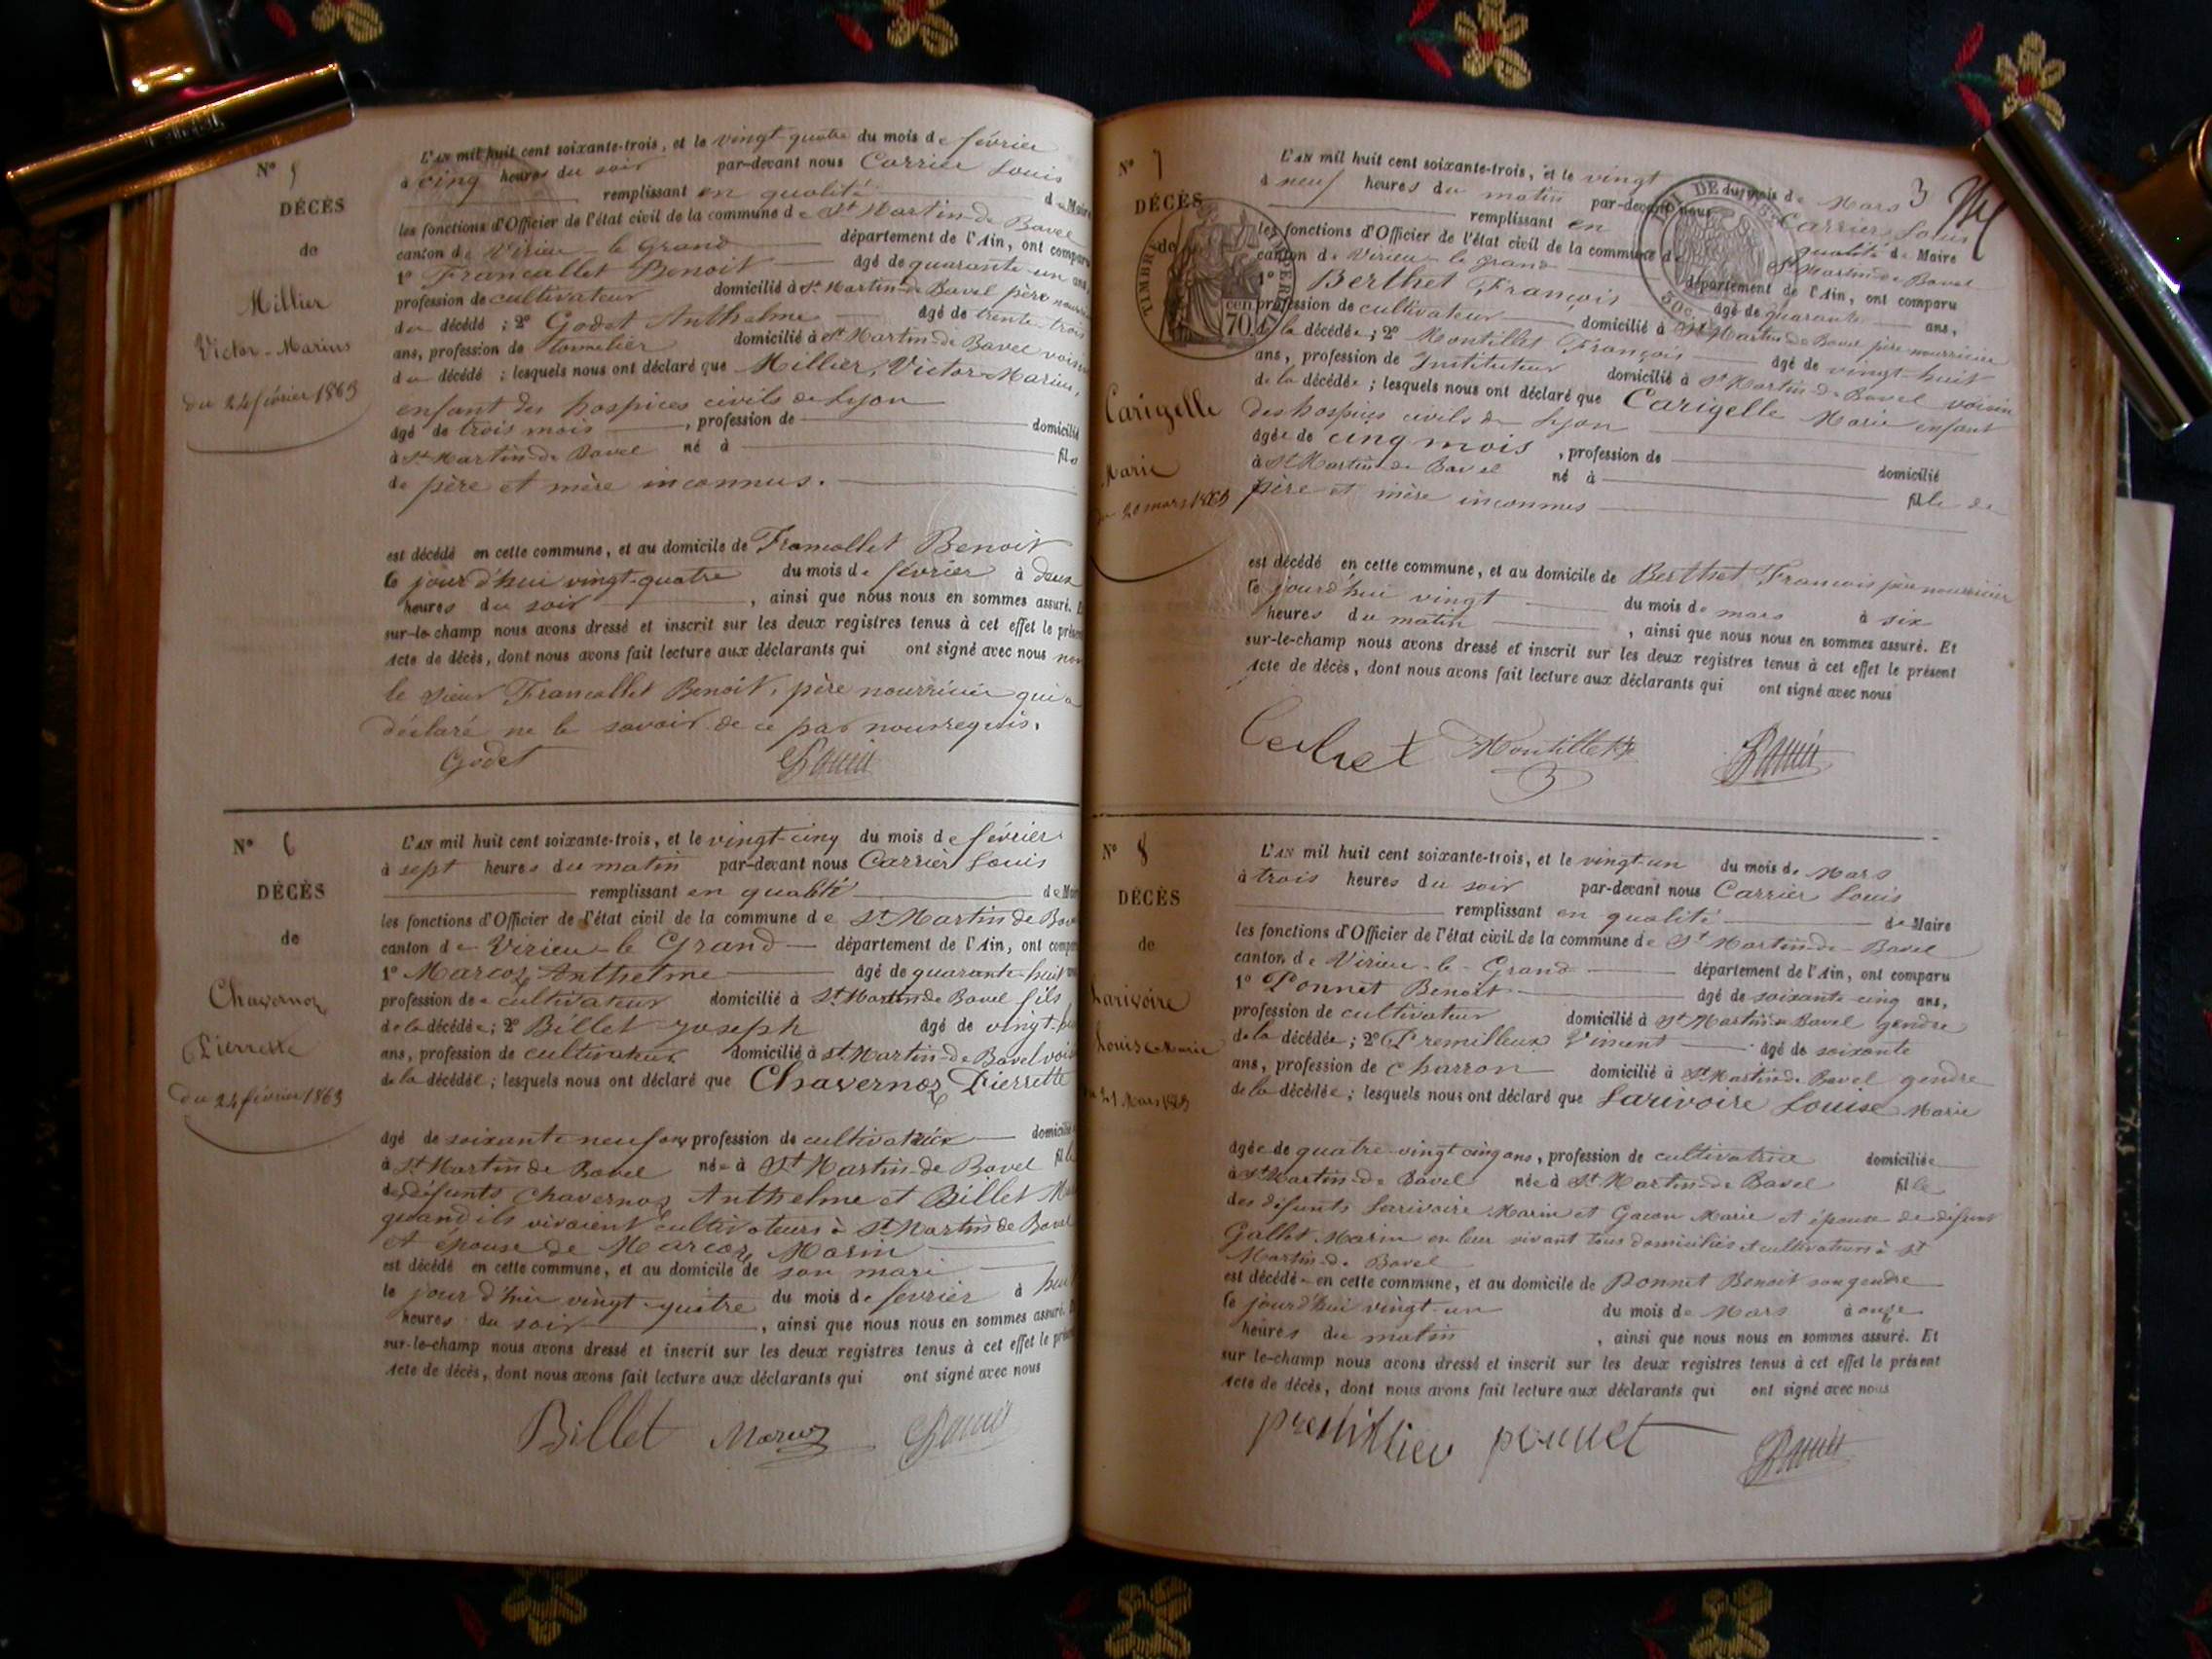 N° 5
DÉCÈS
de
Millier
Victor-Marius
du 24 février 1863
L'AN mil huit cent soixante-trois, et le vingt-quatre du mois de février
à cinq heures du soir par-devant nous Carrier Louis
remplissant en qualité de Maire
les fonctions d'Officier de l'état civil de la commune de St Martin-de Bavel
canton de Virieu-le Grand département de l'Ain, ont comparu
1° Francallet Benoit âgé de quarante-un ans,
profession de cultivateur domicilié à St Martin-de Bavel père
du décédé ; 2° Godet Anthelme âgé de trente-trois
ans, profession de tonnelier domicilié à St Martin-de Bavel voisin
du décédé ; lesquels nous ont déclaré que Millier, Victor-Marius,
enfant des hospices civils de Lyon
âgé de trois mois , profession de domicilié
à St Martin-de Bavel né à fils
de père et mère inconnus.
est décédé en cette commune, et au domicile de Francallet Benoit
le jourd'hui vingt-quatre du mois de février à deux
heures du soir , ainsi que nous nous en sommes assuré. Et
sur-le-champ nous avons dressé et inscrit sur les deux registres tenus à cet effet le présent
Acte de décès, dont nous avons fait lecture aux déclarants qui ont signé avec nous non
le sieur Francallet Benoit, père nourricier qui a
déclaré ne le savoir de ce par nous requis.
Godet Carrier
N° 6
DÉCÈS
de
Chavernoz
Pierrette
du 24 février 1863
L'AN mil huit cent soixante-trois, et le vingt-cinq du mois de février
à sept heures du matin par-devant nous Carrier Louis
remplissant en qualité de Maire
les fonctions d'Officier de l'état civil de la commune de St Martin de Bavel
canton de Virieu-le Grand département de l'Ain, ont comparu
1° Marcoz Anthelme âgé de quarante-huit ans
profession de cultivateur domicilié à St Martin de Bavel fils
de la décédée ; 2° Billet Joseph âgé de vingt-
ans, profession de cultivateur domicilié à St Martin-de Bavel voisin
de la décédée ; lesquels nous ont déclaré que Chavernoz Pierrette
âgé de soixante neuf ans profession de cultivatrice domicilié
à St Martin de Bavel née à St Martin-de Bavel fille
de défunts Chavernoz Anthelme et Billet
quand ils vivaient cultivateurs à St Martin de Bavel
et épouse de Marcoz Marin
est décédé en cette commune, et au domicile de son mari
le jour d'hier vingt-quatre du mois de février à
heures du soir , ainsi que nous nous en sommes assuré. Et
sur-le-champ nous avons dressé et inscrit sur les deux registres tenus à cet effet le présent
Acte de décès, dont nous avons fait lecture aux déclarants qui ont signé avec nous
Billet Marcoz Carrier
N° 7
DÉCÈS
de
TIMBRE IMPÉRIAL
70
Carizelle
Marie
du 20 mars 1863
3
L'AN mil huit cent soixante-trois, et le vingt du mois de Mars
à neuf heures du matin par-devant nous Carrier Louis
remplissant en qualité de Maire
les fonctions d'Officier de l'état civil de la commune de St Martin de Bavel
canton de Virieu-le grand département de l'Ain, ont comparu
1° Berthet François âgé de quarante ans,
profession de cultivateur domicilié à St Martin de Bavel père nourricier
de la décédée ; 2° Montillet François âgé de vingt-huit
ans, profession de Instituteur domicilié à St Martin-de Bavel voisin
de la décédée ; lesquels nous ont déclaré que Carizelle Marie enfant
des hospices civils de Lyon
âgée de cinq mois , profession de domicilié
à St Martin-de Bavel né à fille de
père et mère inconnus
est décédé en cette commune, et au domicile de Berthet François père nourricier
le jourd'hui vingt du mois de mars à six
heures du matin , ainsi que nous nous en sommes assuré. Et
sur-le-champ nous avons dressé et inscrit sur les deux registres tenus à cet effet le présent
Acte de décès, dont nous avons fait lecture aux déclarants qui ont signé avec nous
Montillet Carrier
N° 8
DÉCÈS
de
Larivoire
Louise Marie
du 21 Mars 1863
L'AN mil huit cent soixante-trois, et le vingt-un du mois de Mars
à trois heures du soir par-devant nous Carrier Louis
remplissant en qualité de Maire
les fonctions d'Officier de l'état civil de la commune de St Martin-de-Bavel
canton de Virieu-le-Grand département de l'Ain, ont comparu
1° Ponnet Benoit âgé de soixante-cinq ans,
profession de cultivateur domicilié à St Martin de Bavel gendre
de la décédée ; 2° Premilleux Vincent âgé de soixante
ans, profession de charron domicilié à St Martin de Bavel gendre
de la décédée ; lesquels nous ont déclaré que Larivoire Louise Marie
âgée de quatre-vingt cinq ans, profession de cultivatrice domiciliée
à St Martin-de Bavel née à St Martin-de Bavel fille
des défunts Larivoire Marin et Gacon Marie et épouse de défunt
Gallet Marin en leur vivant tous domiciliés et cultivateurs à St
Martin-de Bavel
est décédée en cette commune, et au domicile de Ponnet Benoit son gendre
le jourd'hui vingt-un du mois de Mars à onze
heures du matin , ainsi que nous nous en sommes assuré. Et
sur le-champ nous avons dressé et inscrit sur les deux registres tenus à cet effet le présent
Acte de décès, dont nous avons fait lecture aux déclarants qui ont signé avec nous
premillieu ponnet Carrier